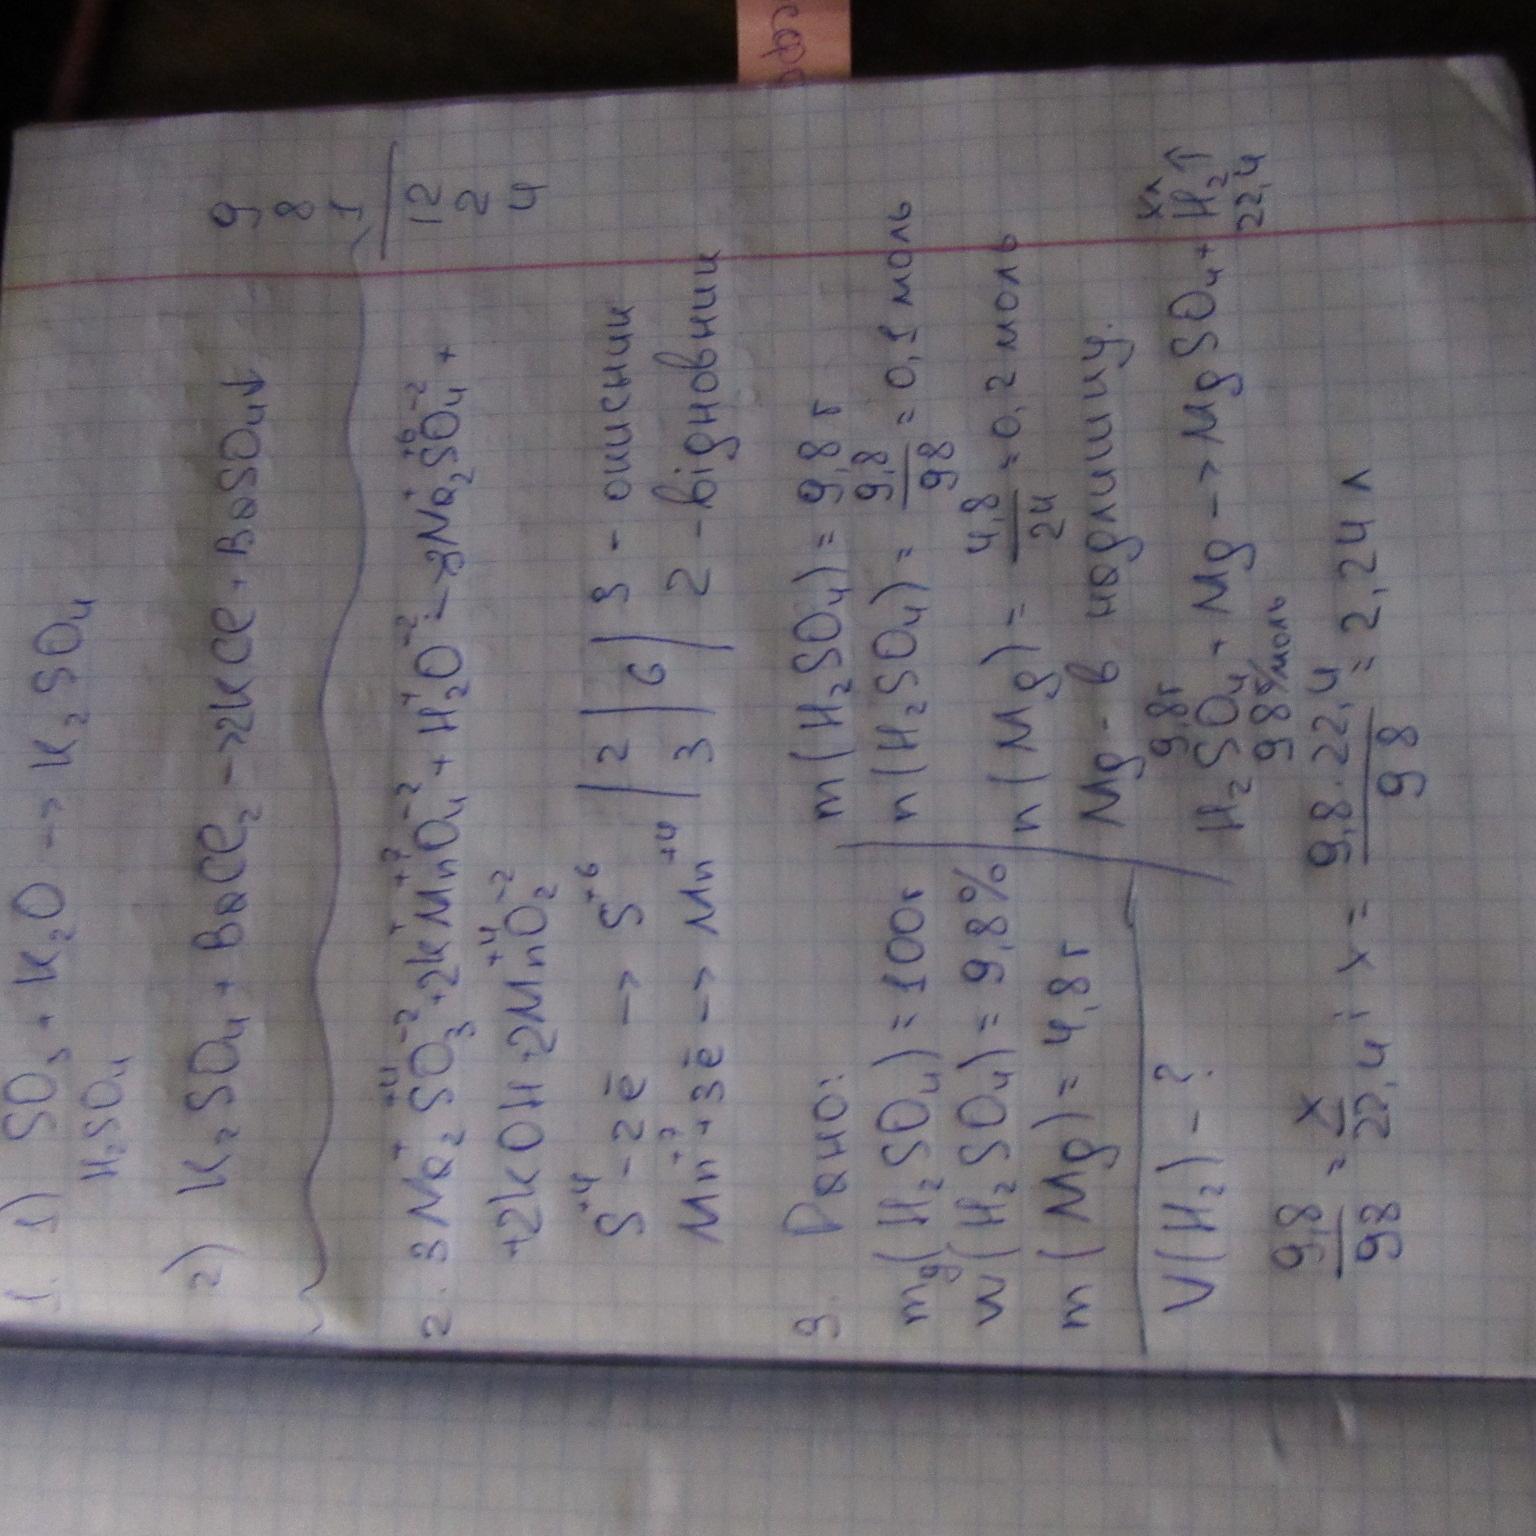 1. 1) SO₃ + K₂O → K₂SO₄
H₂SO₄
2) K₂SO₄ + BaCl₂ → 2KCl + BaSO₄↓
9
8
1
12
2
4
2. 3Na₂⁺S⁺⁴O₃⁻² + 2K⁺Mn⁺⁷O₄⁻² + H₂⁺O⁻² → 3Na₂⁺S⁺⁶O₄⁻² +
+2KOH + 2Mn⁺⁴O₂⁻²
S⁺⁴ - 2ē → S⁺⁶ | 2 | 6 | 3 - окисник
Mn⁺⁷ + 3ē → Mn⁺⁴ | 3 | | 2 - відновник
3. Дано:
mg(H₂SO₄) = 100г
w(H₂SO₄) = 9,8%
m(Mg) = 4,8г
V(H₂) - ?
m(H₂SO₄) = 9,8 г
n(H₂SO₄) = 9,8/98 = 0,1 моль
n(Mg) = 4,8/24 = 0,2 моль
Mg - в надлишку.
9,8г xл
H₂SO₄ + Mg → MgSO₄ + H₂↑
98г/моль 22,4
9,8/98 = x/22,4 ; x = 9,8·22,4/98 = 2,24 л